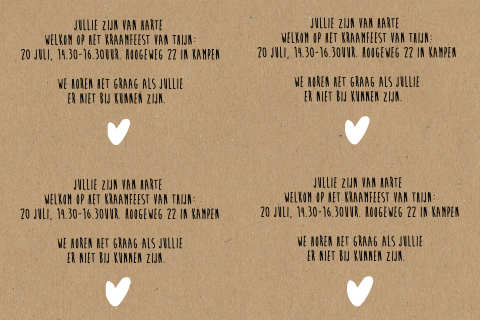 JULLIE ZIJN VAN HARTE
WELKOM OP HET KRAAMFEEST VAN THIJN:
20 JULI, 14.30-16.30UUR. HOOGEWEG 22 IN KAMPEN
WE HOREN HET GRAAG ALS JULLIE
ER NIET BIJ KUNNEN ZIJN.
JULLIE ZIJN VAN HARTE
WELKOM OP HET KRAAMFEEST VAN THIJN:
20 JULI, 14.30-16.30UUR. HOOGEWEG 22 IN KAMPEN
WE HOREN HET GRAAG ALS JULLIE
ER NIET BIJ KUNNEN ZIJN.
JULLIE ZIJN VAN HARTE
WELKOM OP HET KRAAMFEEST VAN THIJN:
20 JULI, 14.30-16.30UUR. HOOGEWEG 22 IN KAMPEN
WE HOREN HET GRAAG ALS JULLIE
ER NIET BIJ KUNNEN ZIJN.
JULLIE ZIJN VAN HARTE
WELKOM OP HET KRAAMFEEST VAN THIJN:
20 JULI, 14.30-16.30UUR. HOOGEWEG 22 IN KAMPEN
WE HOREN HET GRAAG ALS JULLIE
ER NIET BIJ KUNNEN ZIJN.